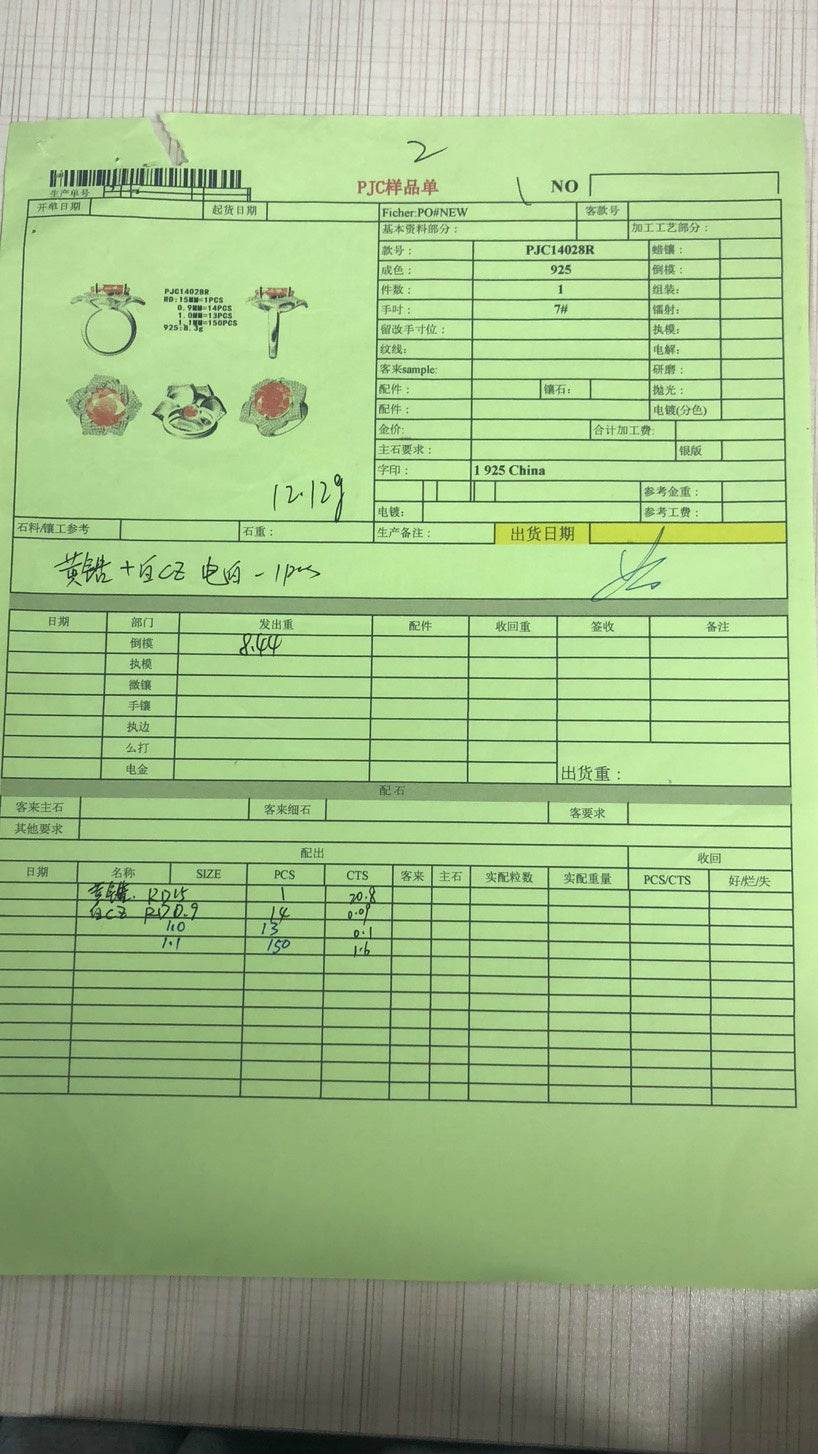 2
生产单号
PJC样品单
NO
开单日期 起货日期 Ficher:PO#NEW 客款号
基本资料部分： 加工工艺部分：
款号： PJC14028R 蜡镶：
成色： 925 倒模：
件数： 1 组装：
手寸： 7# 镭射：
留改手寸位： 执模：
纹线： 电解：
客来sample: 研磨：
配件： 镶石： 抛光：
配件： 电镀(分色)
金价: 合计加工费:
主石要求： 银版
字印： 1 925 China
参考金重：
电镀： 参考工费：
PJC14028R
RD:15MM=1PCS
0.9MM=14PCS
1.0MM=13PCS
1.1MM=150PCS
925:8.3g
12.12g
石料/镶工参考 石重： 生产备注： 出货日期
黄锆+白CZ 电白-1pcs
日期 部门 发出重 配件 收回重 签收 备注
倒模 8.44
执模
微镶
手镶
执边
么打
电金 出货重：
配石
客来主石 客来细石 客要求
其他要求
配出 收回
日期 名称 SIZE PCS CTS 客来 主石 实配粒数 实配重量 PCS/CTS 好/烂/失
黄锆. RD15 1 20.8
白CZ RD0.9 14 0.09
1.0 13 0.1
1.1 150 1.6